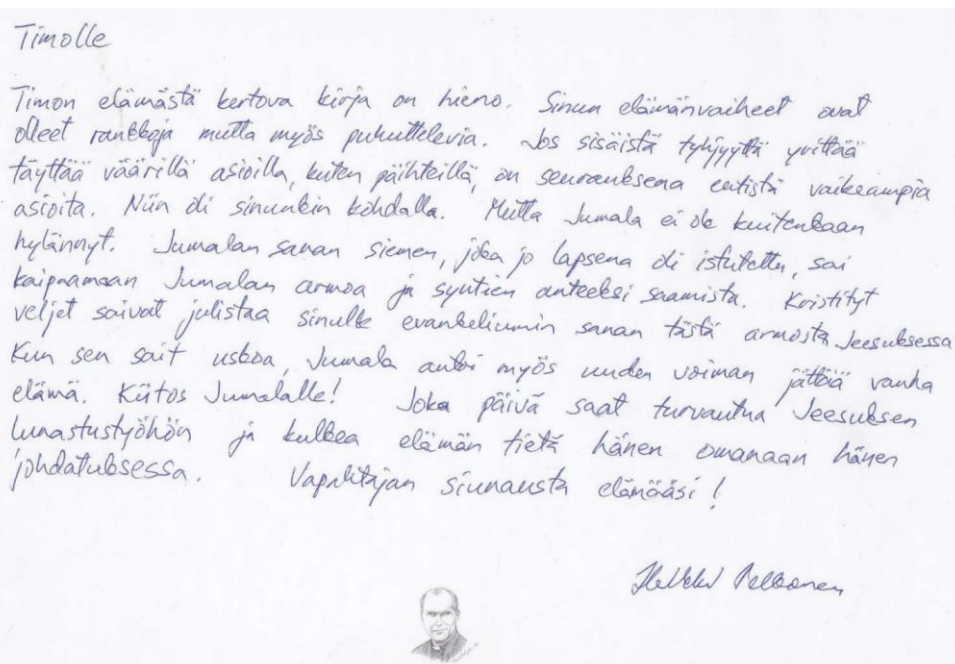 Timolle
Timon elämästä kertova kirja on hieno. Sinun elämänvaiheet ovat
olleet rankkoja mutta myös puhuttelevia. Jos sisäistä tyhjyyttä yrittää
täyttää väärillä asioilla, kuten päihteillä, on seurauksena entistä vaikeampia
asioita. Niin oli sinunkin kohdalla. Mutta Jumala ei ole kuitenkaan
hylännyt. Jumalan sanan siemen, joka jo lapsena oli istutettu, sai
kaipaamaan Jumalan armoa ja syntien anteeksi saamista. Kristityt
veljet saivat julistaa sinulle evankeliumin sanan tästä armosta Jeesuksessa
Kun sen sait uskoa, Jumala antoi myös uuden voiman jättää vanha
elämä. Kiitos Jumalalle! Joka päivä saat turvautua Jeesuksen
lunastustyöhön ja kulkea elämän tietä hänen omanaan hänen
johdatuksessa. Vapahtajan siunausta elämääsi!
Heikki Pelkonen